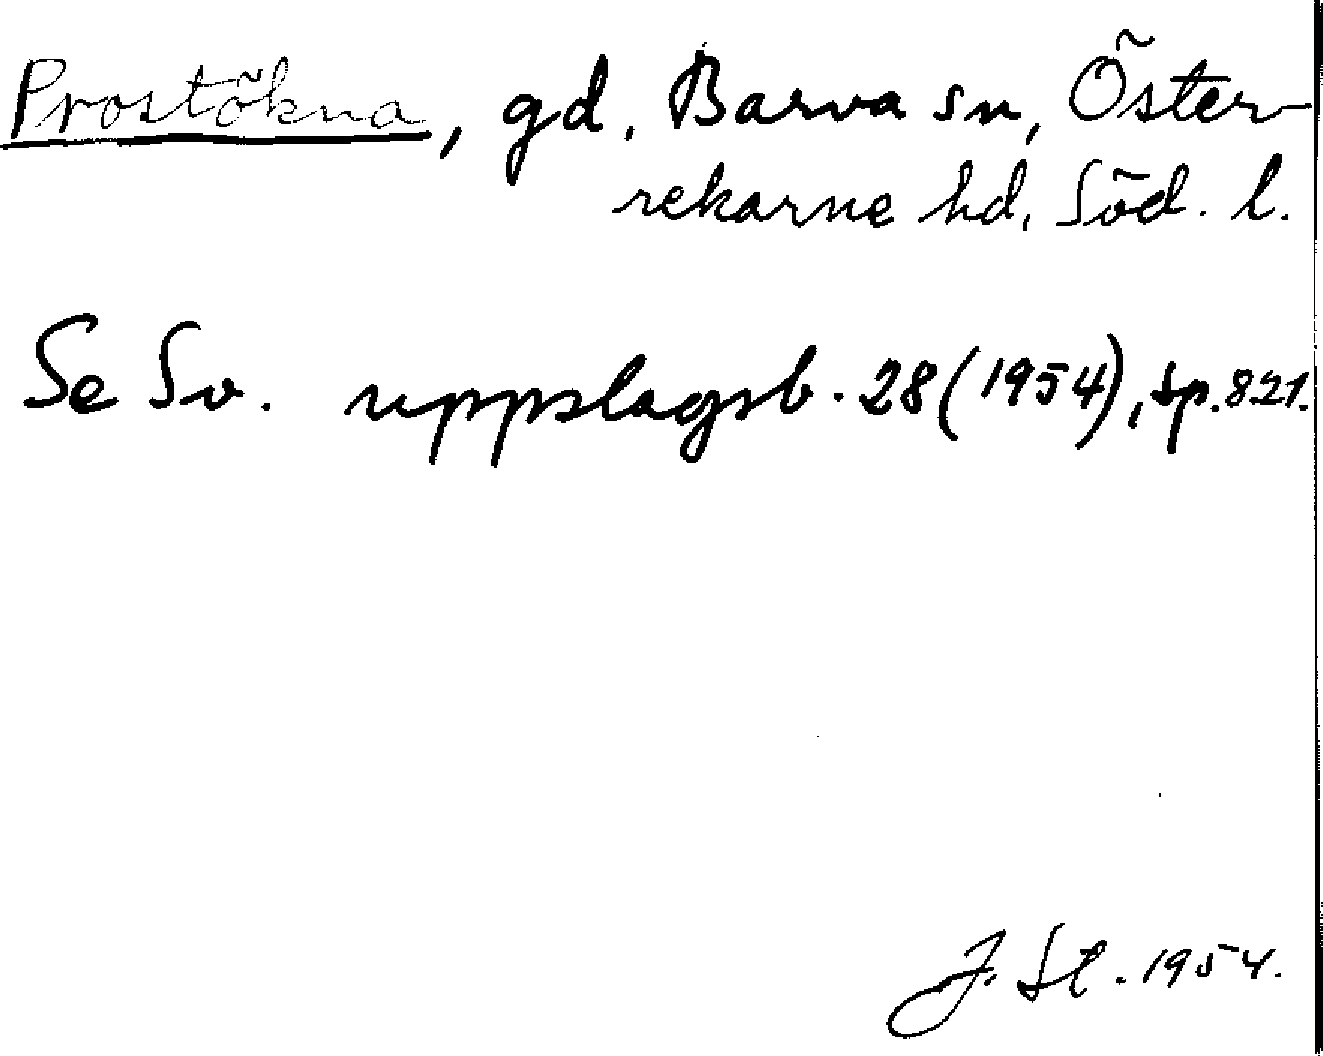 Prostökna, gd, Barva sn, Öster-
rekarne hd, Söd. l.
Se Sv. uppslagsb. 28 (1954), sp. 821.
J. St. 1954.